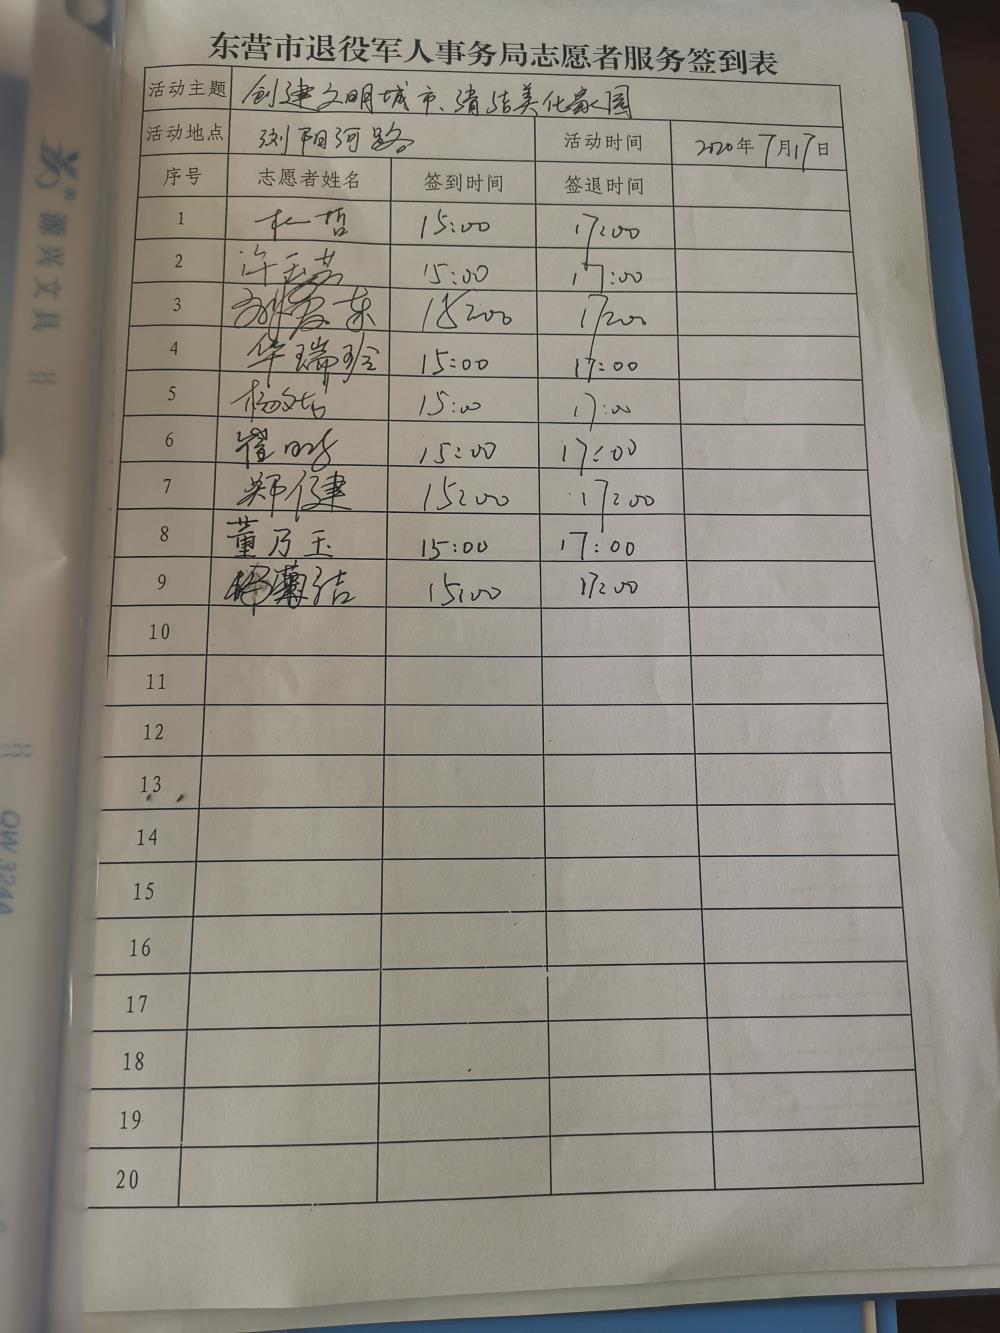 东营市退役军人事务局志愿者服务签到表
活动主题 创建文明城市、清洁美化家园
活动地点 浏阳河路 活动时间 2020年7月17日
序号 志愿者姓名 签到时间 签退时间
1 杜哲 15:00 17:00
2 15:00 17:00
3 东 15:00 17:00
4 华瑞玲 15:00 17:00
5 杨 15:00 17:00
6 崔 15:00 17:00
7 郑健 15:00 17:00
8 董乃玉 15:00 17:00
9 洁 15:00 17:00
10
11
12
13
14
15
16
17
18
19
20
源兴文具
QW324A